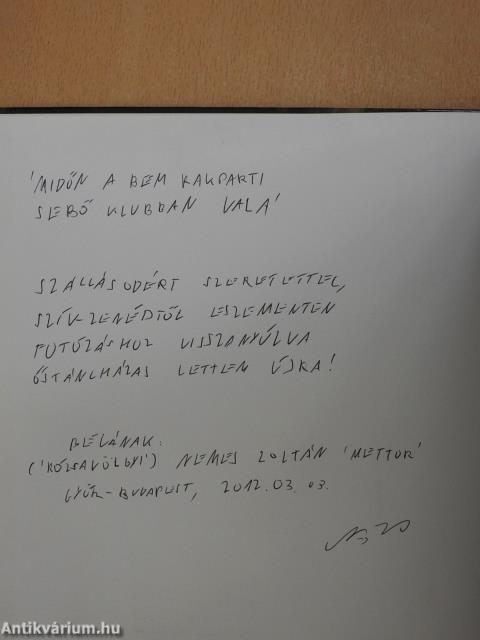 'MIDŐN A BEM RAKPARTI
SEBŐ KLUBBAN VALA'
SZÁLLÁSODÉRT SZERETETTEL,
SZÍV-ZENÉDTŐL ESZEMENTEN
FUTÓZÁSHOZ VISSZANYÚLVA
ŐSTÁNCHÁZAS LETTEM ÚJRA!
BÉLÁNAK:
('RÓZSAVÖLGYI') NEMES ZOLTÁN 'METTOR'
GYŐR-BUDAPEST, 2012.03.03.
Antikvárium.hu